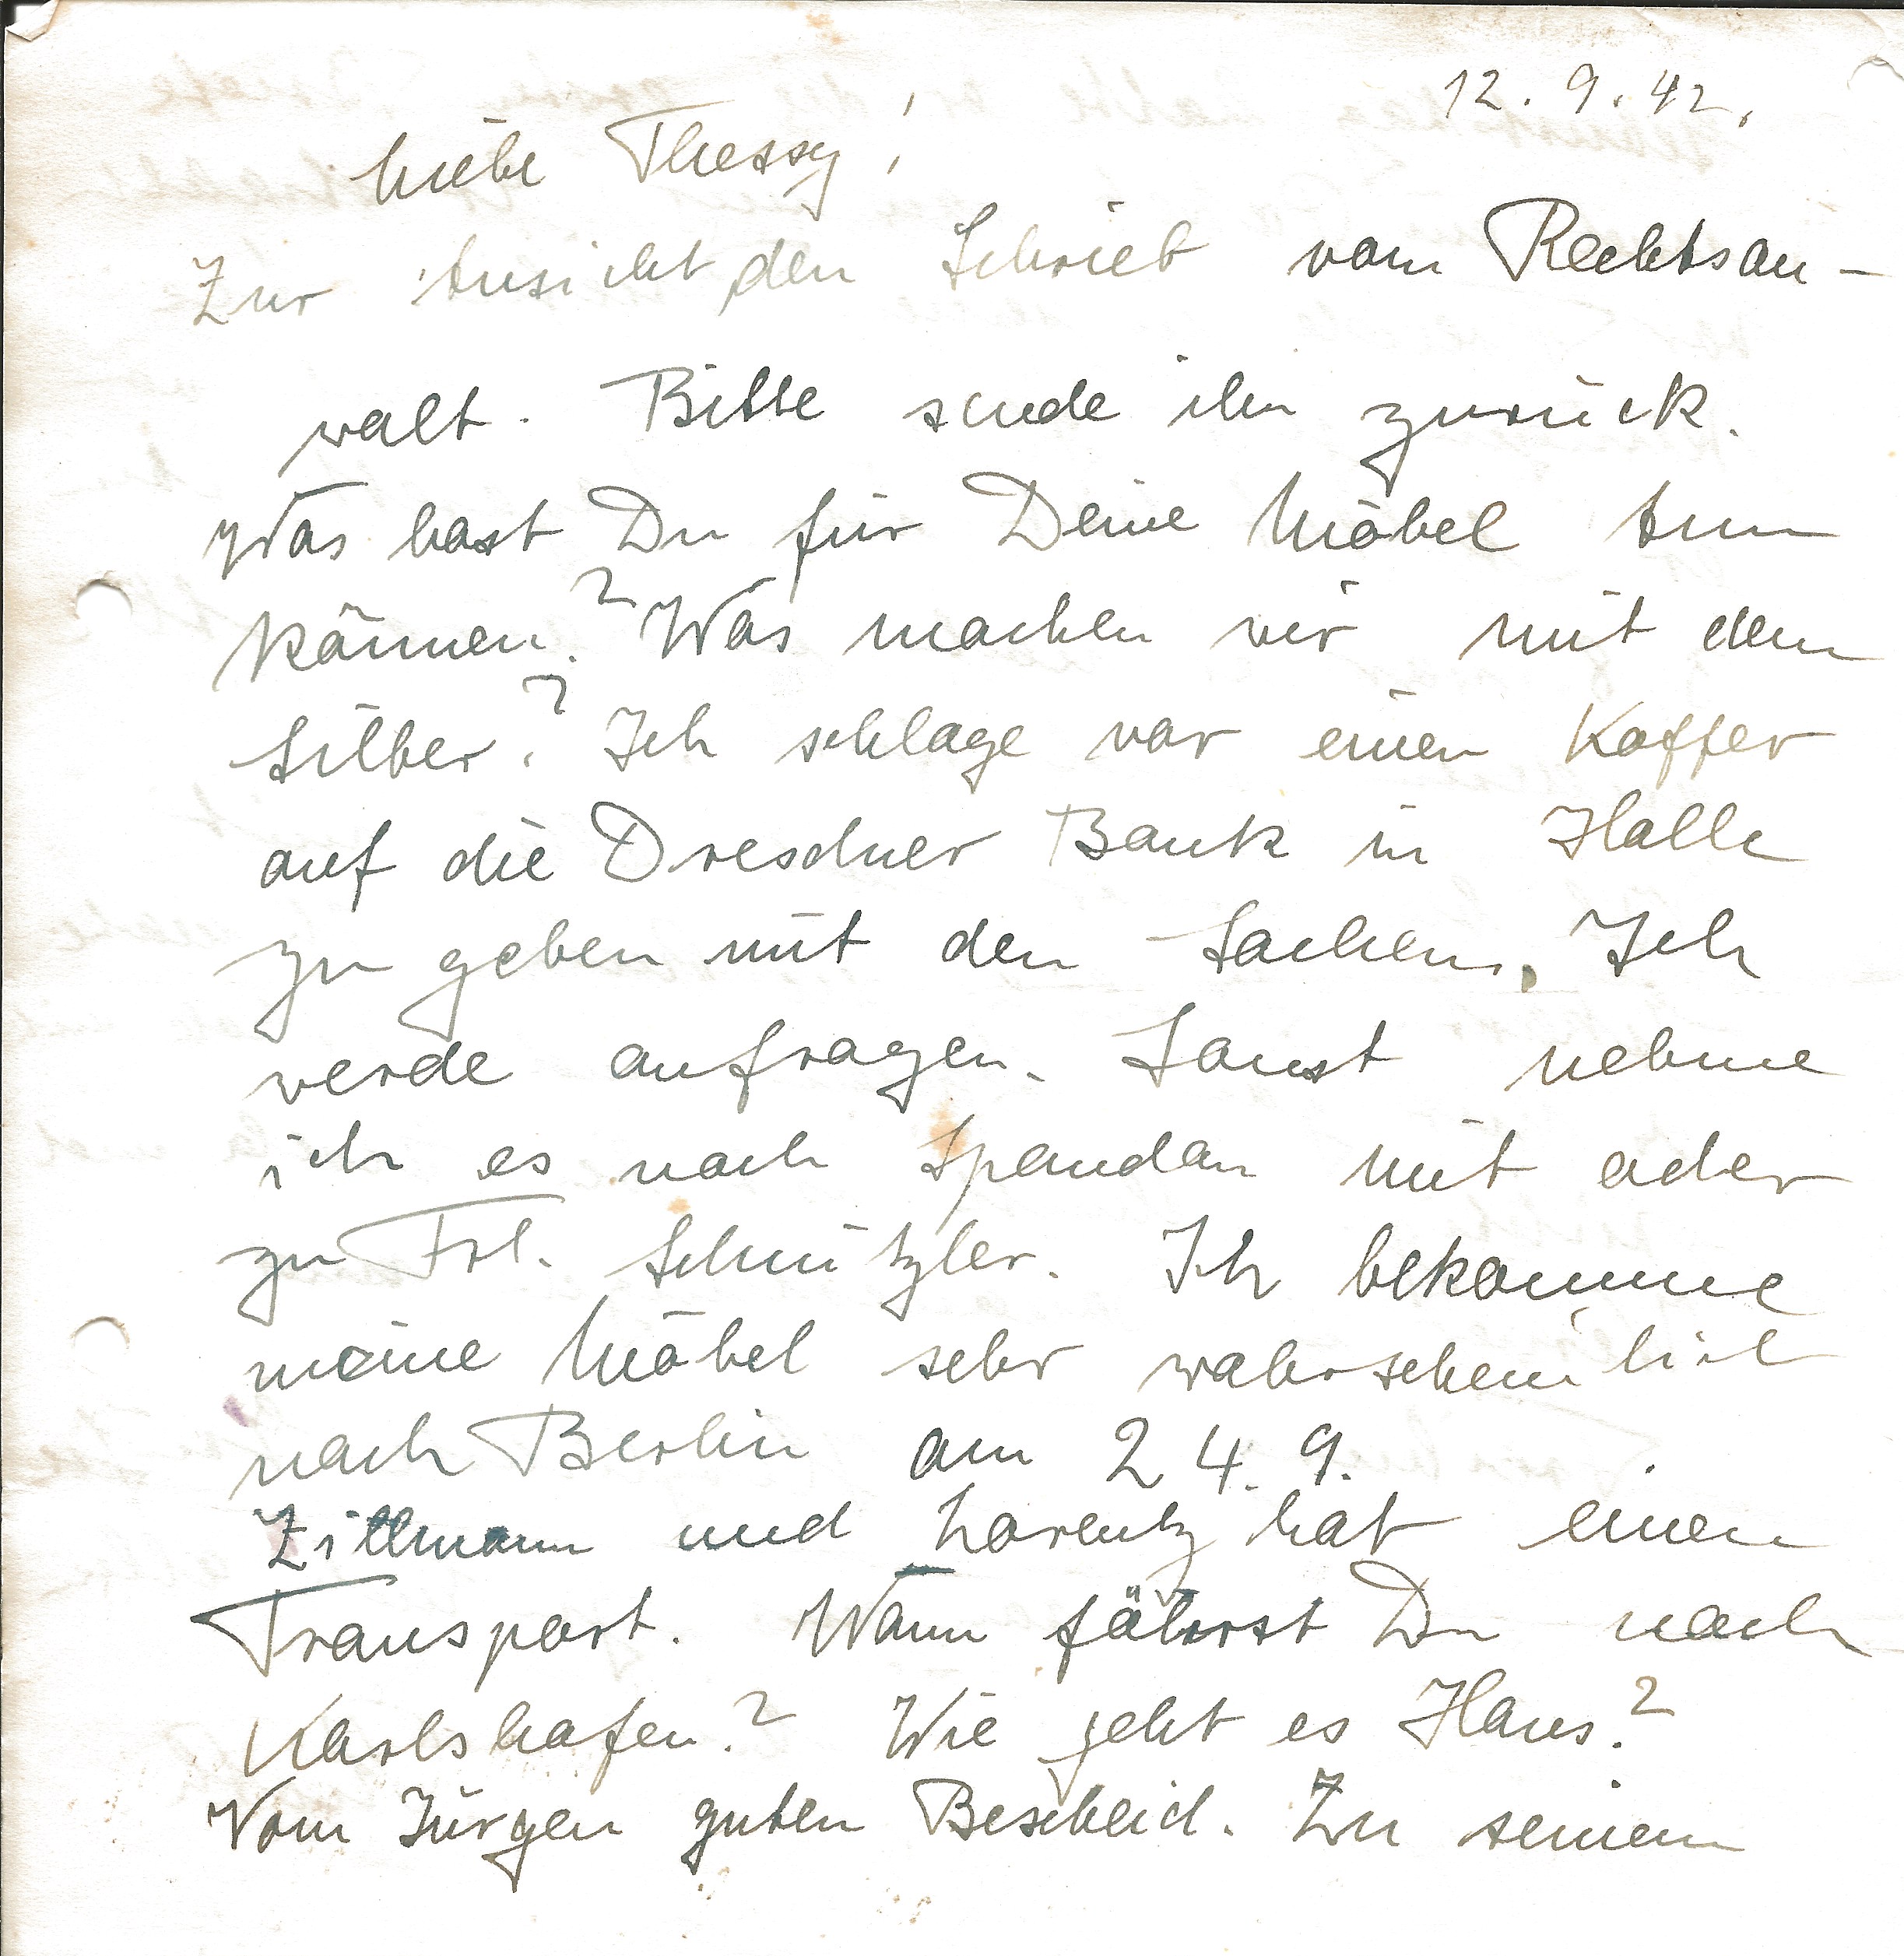 12.9.42.
Liebe Thessy!
Zur Ansicht den Schrieb vom Rechtsan-
walt. Bitte sende ihn zurück.
Was hast Du für Deine Möbel tun
können? Was machen wir mit dem
Silber? Ich schlage vor einen Koffer
auf die Dresdner Bank in Halle
zu geben mit den Sachen. Ich
werde anfragen. Sonst nehme
ich es nach Spandau mit oder
zu Frl. Schnitzler. Ich bekomme
meine Möbel sehr wahrscheinlich
nach Berlin am 24.9.
Zillmann und Lorentz hat einen
Transport. Wann fährst Du nach
Karlshafen? Wie geht es Hans?
Von Jürgen guten Bescheid. Zu seinem